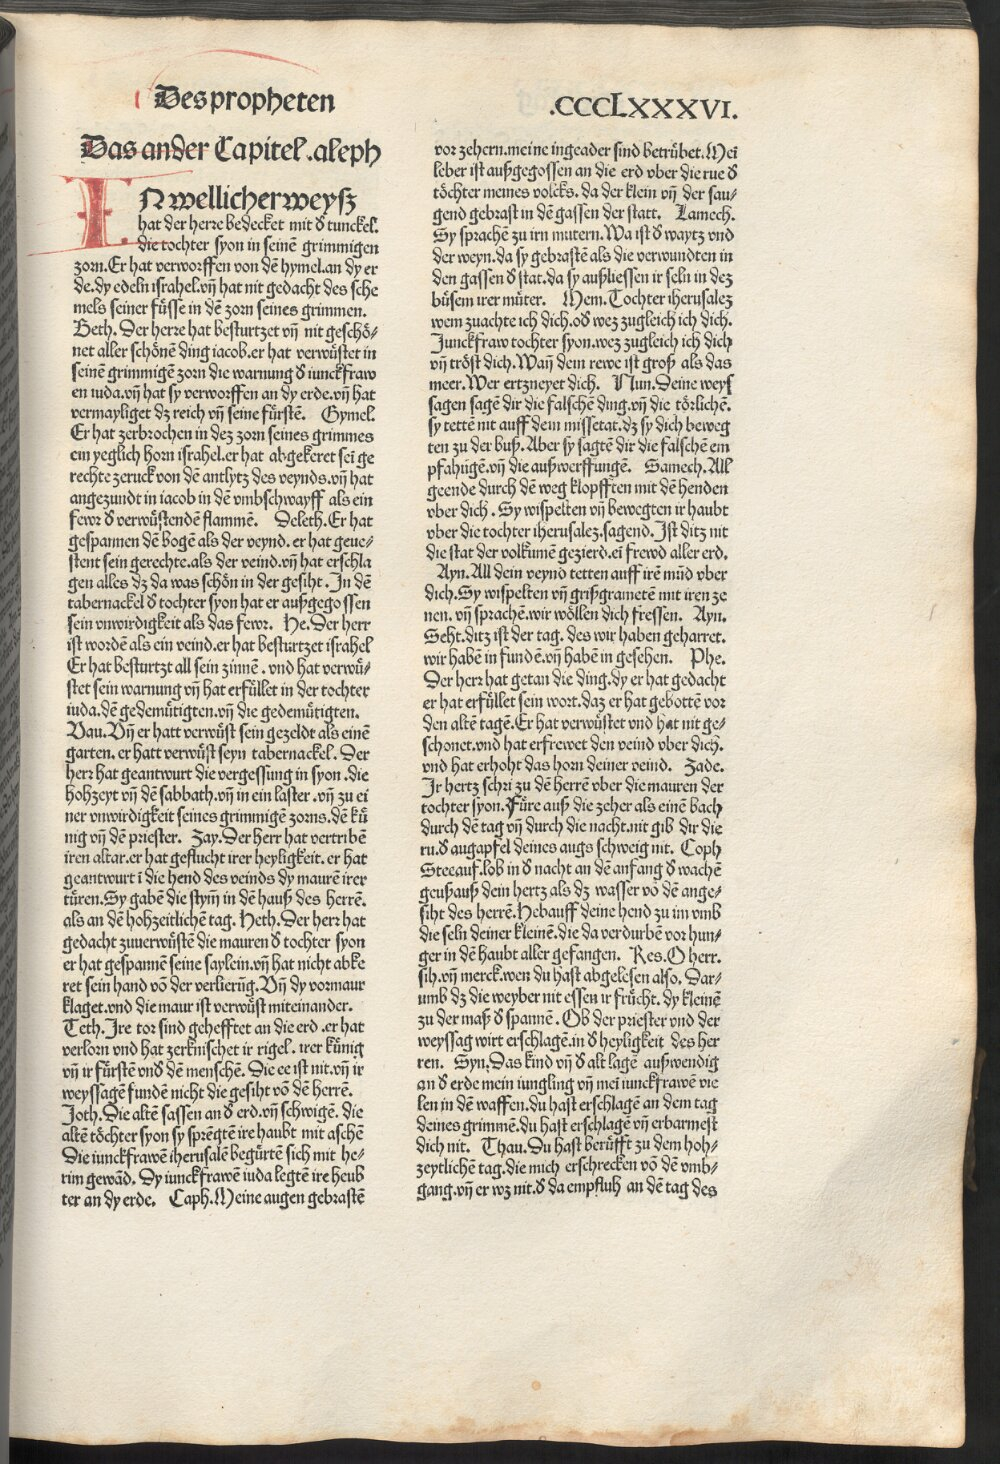 Des propheten
.CCCLXXXVI.
Das ander Capitel .aleph
IN wellicher weysz
hat der herre bedecket mit d̕ tunckel.
die tochter syon in seinē grimmigen
zorn. Er hat verworffen von dē hymel. an dy er
de. dy edeln israhel. vn̄ hat nit gedacht des sche
mels seiner füsse in dē zorn seines grimmen.
Beth. Der herre hat besturtzet vn̄ nit geschö⸗
net aller schönē ding iacob. er hat verwüstet in
seinē grimmigē zorn die warnung d̕ iunckfraw
en iuda. vn̄ hat sy verworffen an dy erde. vn̄ hat
vermayliget dz reich vn̄ seine fürstē. Gymel.
Er hat zerbrochen in dez zorn seines grimmes
ein yeglich horn israhel. er hat abgekeret sei ge
rechte zeruck von dē antlytz des veynds. vn̄ hat
angezundt in iacob in dē vmbschwayff als ein
fewr d̕ verwüstendē flammē. Deleth. Er hat
gespannen dē bogē als der veynd. er hat geue⸗
stent sein gerechte. als der veind. vn̄ hat erschla
gen alles dz da was schön in der gesiht. In dē
tabernackel d̕ tochter syon hat er außgegossen
sein vnwirdigkeit als das fewr. He. Der herr
ist wordē als ein veind. er hat besturtzet israhel
Er hat besturtzt all sein zinnē. vnd hat verwü⸗
stet sein warnung vn̄ hat erfüllet in der tochter
iuda. dē gedemütigten. vn̄ die gedemütigten.
Vau. Vn̄ er hatt verwüst sein gezeldt als einē
garten. er hatt verwüst seyn tabernackel. Der
herr hat geantwurt die vergessung in syon. die
hohzeyt vn̄ dē sabbath. vn̄ in ein laster. vn̄ zu ei
ner vnwirdigkeit seines grimmigē zorns. dē kü
nig vn̄ dē priester. Zay. Der herr hat vertribē
iren altar. er hat geflucht irer heyligkeit. er hat
geantwurt ī die hend des veinds dy maurē irer
türen. Sy gabē die stym̄ in dē hauß des herrē.
als an dē hohzeitlichē tag. Heth. Der herr hat
gedacht zuuerwüstē die mauren d̕ tochter syon
er hat gespannē seine saylein. vn̄ hat nicht abke
ret sein hand vō der verlierūg. Vn̄ dy vormaur
klaget. vnd die maur ist verwüst miteinander.
Teth. Ire tor sind gehefftet an die erd. er hat
verlorn vnd hat zerknischet ir rigel. irer künig
vn̄ ir fürstē vnd̕ dē menschē. Die ee ist nit. vn̄ ir
weyssagē fundē nicht die gesiht vō dē herrē.
Joth. Die altē sassen an d̕ erd. vn̄ schwigē. die
altē töchter syon sy sprēgtē ire haubt mit aschē
Die iunckfrawē iherusalē begürtē sich mit he⸗
rim gewād. Dy iunckfrawē iuda legtē ire heub
ter an dy erde. Caph. Meine augen gebrastē
vor zehern. meine ingeader sind betrübet. Mei
leber ist außgegossen an die erd vber die rue d̕
töchter meines volcks. da der klein vn̄ der sau⸗
gend gebrast in dē gassen der statt. Lamech.
Sy sprachē zu irn mutern. Wa ist d̕ waytz vnd
der weyn. da sy gebrastē als die verwundten in
den gassen d̕ stat. da sy außliessen ir seln in dez
büsem irer müter. Mem. Tochter iherusalez
wem zuachte ich dich. od̕ wez zugleich ich dich.
Junckfraw tochter syon. wez zugleich ich dich
vn̄ tröst dich. Wan̄ dem rewe ist groß als das
meer. Wer ertzneyet dich. Nun. Deine weys
sagen sagē dir die falschē ding. vn̄ die törlichē.
sy tettē nit auff dein missetat. dz sy dich beweg
ten zu der buß. Aber sy sagtē dir die falschē em
pfahūgē. vn̄ die außwerffungē. Samech. All
geende durch dē weg klopfften mit dē henden
vber dich. Sy wispelten vn̄ bewegten ir haubt
vber die tochter iherusalez. sagend. Ist ditz nit
die stat der volkumē gezierd. ei frewd aller erd.
Ayn. All dein veynd tetten auff irē mūd vber
dich. Sy wispelten vn̄ grißgrametē mit iren ze
nen. vn̄ sprachē. wir wöllen dich fressen. Ayn.
Seht. ditz ist der tag. des wir haben geharret.
wir habē in fundē. vn̄ habē in gesehen. Phe.
Der herr hat getan die ding. dy er hat gedacht
er hat erfüllet sein wort. daz er hat gebottē vor
den altē tagē. Er hat verwüstet vnd hat nit ge⸗
schonet. vnd hat erfrewet den veind vber dich.
vnd hat erhoht das horn deiner veind. Zade.
Ir hertz schri zu dē herrē vber die mauren der
tochter syon. Füre auß die zeher als einē bach
durch dē tag vn̄ durch die nacht. nit gib dir die
ru. d̕ augapfel deines augs schweig nit. Coph
Steeauf. lob in d̕ nacht an dē anfang d̕ wachē
geußauß dein hertz als dz wasser vō dē ange⸗
siht des herrē. Hebauff deine hend zu im vmb
die seln deiner kleinē. die da verdurbē vor hun⸗
ger in dē haubt aller gefangen. Res. O herr.
sih. vn̄ merck. wen du hast abgelesen also. Dar⸗
umb dz die weyber nit essen ir frücht. dy kleinē
zu der maß d̕ spannē. Ob der priester vnd der
weyssag wirt erschlagē. in d̕ heyligkeit des her
ren. Syn. Das kind vn̄ d̕ alt lagē außwendig
an d̕ erde mein iungling vn̄ mei iunckfrawē vie
len in dē waffen. du hast erschlagē an dem tag
deines grimmē. du hast erschlagē vn̄ erbarmest
dich nit. Thau. Du hast berüfft zu dem hoh⸗
zeytlichē tag. die mich erschrecken vō dē vmb⸗
gang. vn̄ er wz nit. d̕ da empfluh an dē tag des